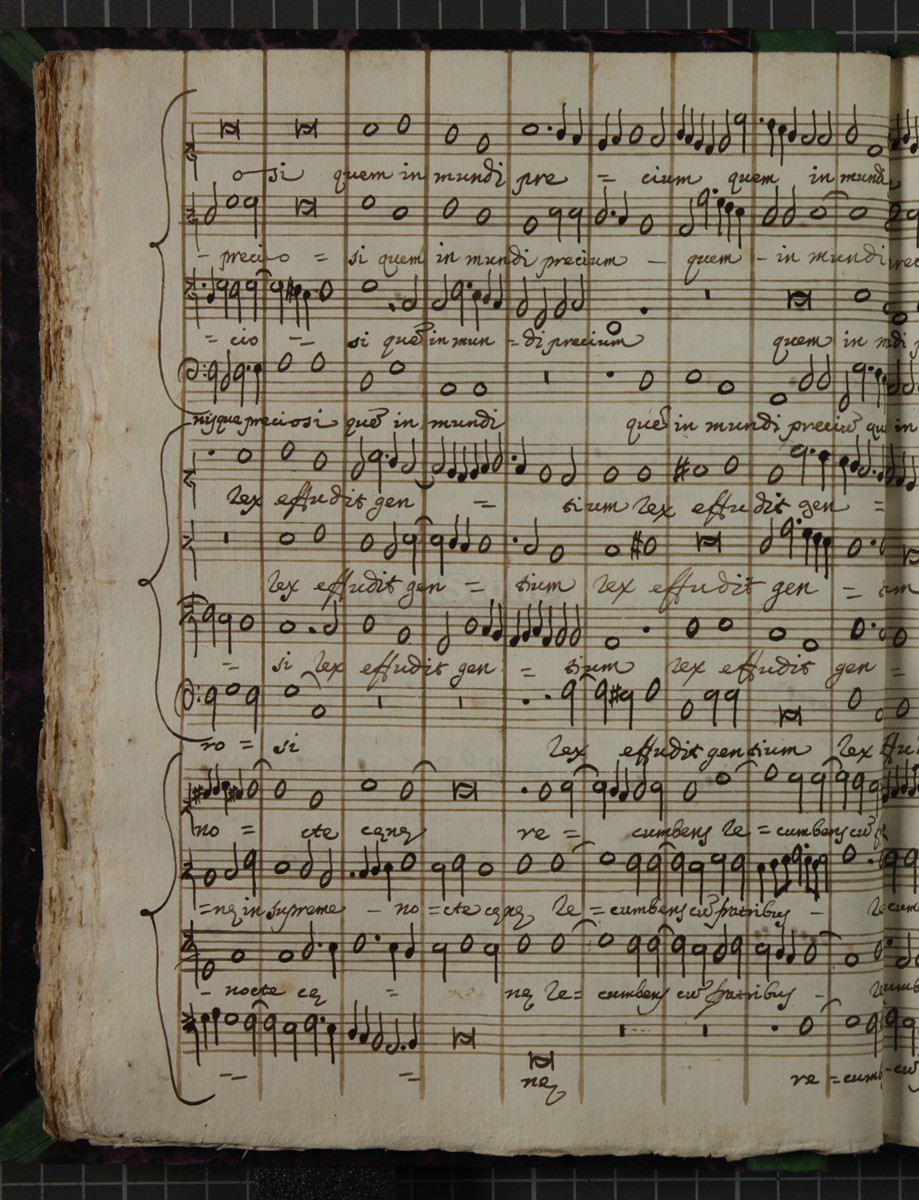 o - si quem in mundi pre = cium quem in mundi
- precio = si quem in mundi precium - quem - in mundi
= cio - = si quē in mun = di precium quem in mūdi
nisque preciosi quē in mundi quē in mundi preciū qu in
rex effudit gen = tium rex effudit gen =
rex effudit gen = tium rex effudit gen = ium
= si rex effudit gen = tium rex effudit gen =
ro = si rex effudit gentium rex effu
no = cte cęnę re = cumbens re = cumbens cū
= nę in supreme - no = cte cęnę re = cumbens cū fratribus - recum
- nocte cę = nę re = cumbens cū fratribus -
= = nę re = cum = cū